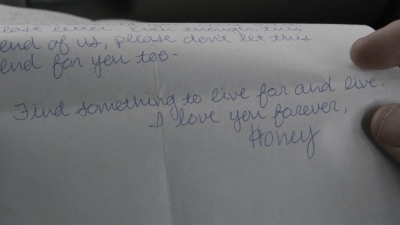 please
end of us, please don't let this
end for you too-
Find something to live for and live.
I love you forever,
Honey